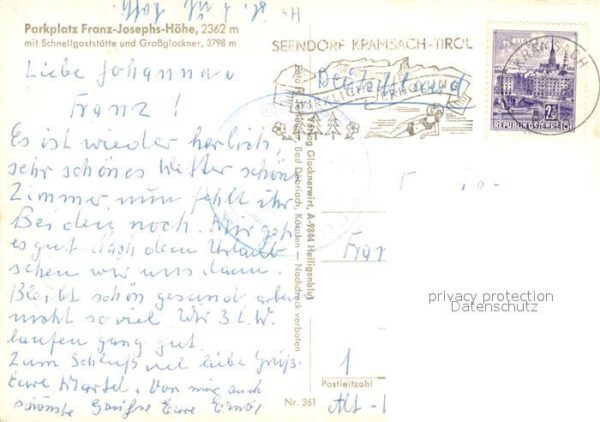 Parkplatz Franz-Josephs-Höhe, 2362 m
mit Schnellgaststätte und Großglockner, 3798 m
Liebe Johanna u
Franz!
Es ist wieder herlich,
sehr schönes Wetter schöne
Zimmer, nun fehlt ihr
Beiden noch. Mir geht
es gut. Nach dem Urlaub
sehen wir uns dann.
Bleibt schön gesund, arbei
nicht so viel. Wir 3 L.W.
laufen ganz gut.
Zum Schluß viel liebe Grüße
Eure Martel. Von mir auch
schönste Grüße Eure
SEENDORF KRAMSACH-TIROL
WIRKLICHE ERHOLUNG
Deutschland
KRAMSACH
2S
REPUBLIK ÖSTERREICH
Verlag Glocknerwirt, A-9844 Heiligenblut
Bad Döbriach, Kärnten — Nachdruck verboten
Fran
privacy protection
Datenschutz
1
Postleitzahl
Alt-
Nr. 361